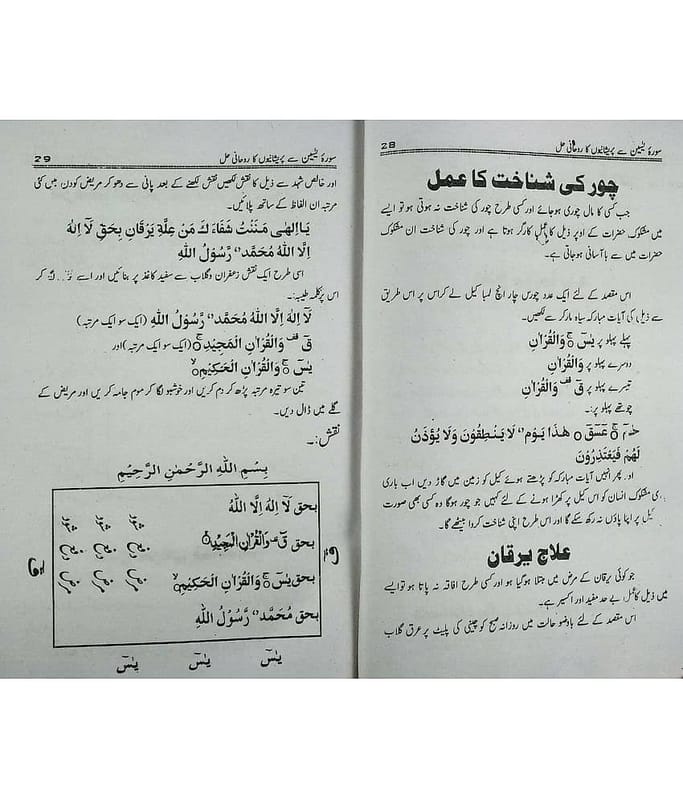 28
سورۂ یٰسین سے پریشانیوں کا روحانی حل
چور کی شناخت کا عمل
جب کسی کا مال چوری ہو جائے اور کسی طرح چور کی شناخت نہ ہوتی ہو تو ایسے
میں مشکوک حضرات کے اوپر ذیل کا عمل کارگر ہوتا ہے اور چور کی شناخت ان مشکوک
حضرات میں سے با آسانی ہو جاتی ہے۔
اس مقصد کے لئے ایک عدد چورس چار انچ لمبا کیل لے کر اس پر اس طریق
سے ذیل کی آیات مبارکہ سیاہ مارکر سے لکھیں۔
پہلے پہلو پر یٰسٓ ۚ وَالْقُرْاٰنِ
دوسرے پہلو پر وَالْقُرْاٰنِ
تیسرے پہلو پر قٓ قف وَالْقُرْاٰنِ
چوتھے پہلو پر:۔
حٰمٓ ۚ عٓسٓقٓ ○ هٰذَا يَوْمُ لَا يَنْطِقُوْنَ وَلَا يُؤْذَنُ
لَهُمْ فَيَعْتَذِرُوْنَ
او پھر انہیں آیات مبارکہ کو پڑھتے ہوئے کیل کو زمین میں گاڑ دیں اب باری
ری مشکوک انسان کو اس کیل پر کھڑا ہونے کے لئے کہیں جو چور ہوگا وہ کسی بھی صورت
کیل پر اپنا پاؤں نہ رکھ سکے گا اور اس طرح اپنی شناخت کروا بیٹھے گا۔
علاج یرقان
جو کوئی یرقان کے مرض میں مبتلا ہوگیا ہو اور کسی طرح افاقہ نہ پاتا ہو تو ایسے
میں ذیل کا عمل بے حد مفید اور اکسیر ہے۔
اس مقصد کے لئے باوضو حالت میں روزانہ صبح کو چینی کی پلیٹ پر عرق گلاب
29
سورۂ یٰسین سے پریشانیوں کا روحانی حل
اور خالص شہد سے ذیل کا نقش لکھیں نقش لکھنے کے بعد پانی سے دھو کر مریض کو دن میں کئی
مرتبہ ان الفاظ کے ساتھ پلائیں۔
يَا اِلٰهٰى مَنَنْتُ شَفَاءَ كَ مَنْ عِلَّةِ يَرْقَانِ بِحَقِ لَآ اِلٰهَ
اِلَّا اللّٰهُ مُحَمَّدٌ رَّسُوْلُ اللّٰهِ
اسی طرح ایک نقش زعفران و گلاب سے سفید کاغذ پر بنائیں اور اسے کر
اس پر کلمہ طیبہ:۔
لَآ اِلٰهَ اِلَّا اللّٰهُ مُحَمَّدٌ رَّسُوْلُ اللّٰهِ (ایک سو ایک مرتبہ)
قٓ قف وَالْقُرْاٰنِ الْمَجِيْدِ ۚ (ایک سو ایک مرتبہ) اور
يٰسٓ ۚ وَالْقُرْاٰنِ الْحَكِيْمِ ۙ
تین سو تیرہ مرتبہ پڑھ کر دم کریں اور خوشبو لگا کر موم جامہ کریں اور مریض کے
گلے میں ڈال دیں۔
نقش:۔
بِسْمِ اللّٰهِ الرَّحْمٰنِ الرَّحِيْمِ
بحق لَآ اِلٰهَ اِلَّا اللّٰهُ
بحق قٓ قف وَالْقُرْاٰنِ الْمَجِيْدِ ۚ
بحق يٰسٓ ۚ وَالْقُرْاٰنِ الْحَكِيْمِ ۙ
بحق مُحَمَّدٌ رَّسُوْلُ اللّٰهِ
مرض دفع شود
مرض دفع شود
مرض دفع شود
قٓ
قٓ
یٰسٓ یٰسٓ یٰسٓ